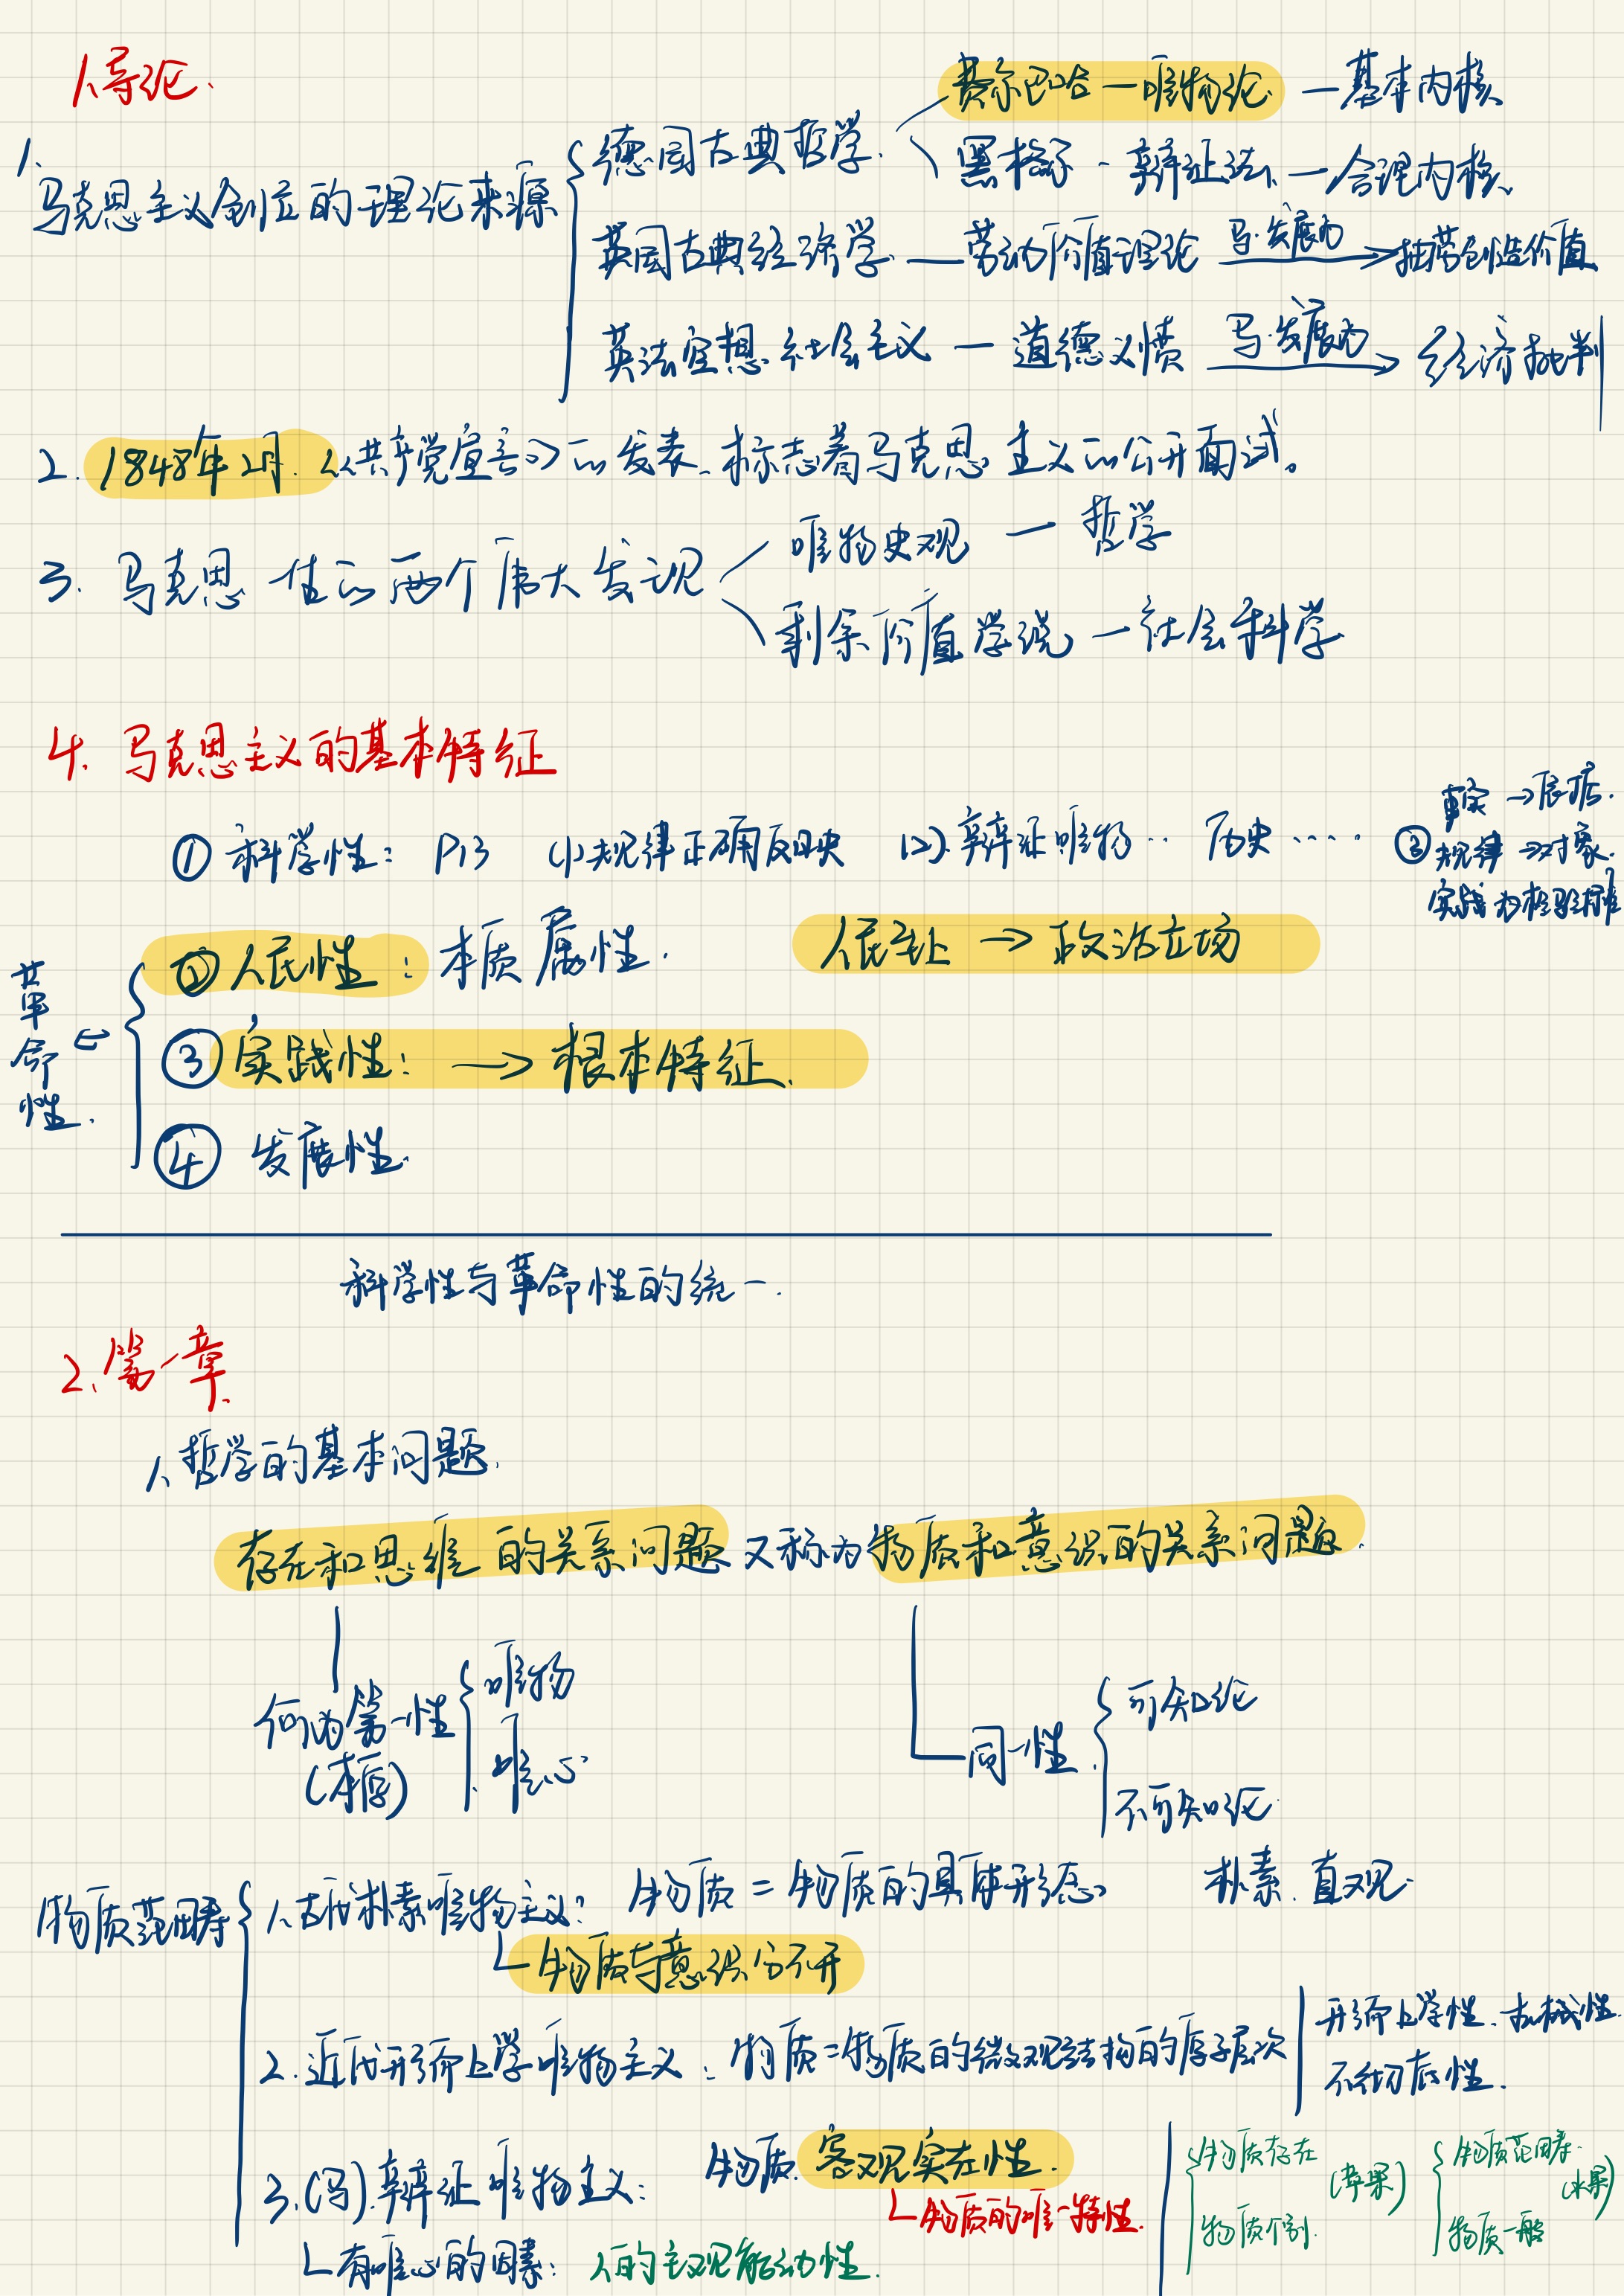 1、导论.
费尔巴哈一唯物论 一基本内核、
德国古典哲学.
黑格尔 - 辩证法、一合理内核、
1.
马克思主义创立的理论来源
英国古典经济学 — 劳动价值理论 马.发展为 → 抽劳创造价值
英法空想社会主义 一 道德义愤 马.发展为 → 经济批判
2. 1848年2月.《共产党宣言》的发表、标志着马克思主义的公开面试。
3. 马克思一生的两个伟大发现
唯物史观 — 哲学
剩余价值学说 一社会科学
4. 马克思主义的基本特征
事实 →依据.
① 科学性: P13 (1)规律正确反映 (2).辩证唯物… 历史…… ③ 规律 →对象.
实践为检验
② 人民性: 本质属性. 人民至上 → 政治立场
革命性.
③ 实践性: → 根本特征.
④ 发展性.
科学性与革命性的统一.
2、第一章.
1、哲学的基本问题.
存在和思维的关系问题 又称为物质和意识的关系问题.
何为第一性
(本原)
唯物
唯心
同一性.
可知论
不可知论
物质范畴
1、古代朴素唯物主义: 物质 = 物质的具体形态 朴素.直观.
物质与意识分不开
2.近代形而上学唯物主义: 物质=物质的微观结构的原子层次
形而上学性、机械性.
不彻底性.
3.(马).辩证唯物主义: 物质.客观实在性.
物质的唯一特性.
物质存在 (苹果)
物质个别.
物质范畴. (水果)
物质一般
有唯心的因素: 人的主观能动性.